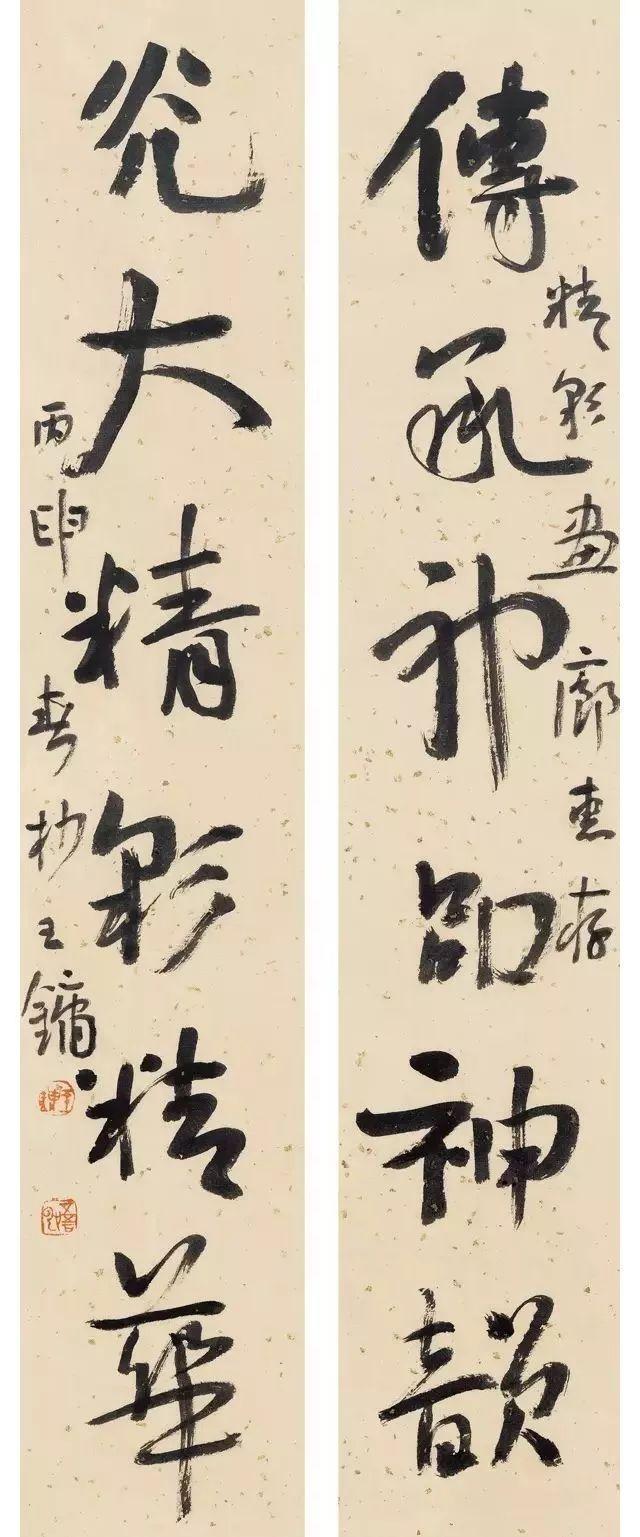 傳承神神韻
精彩畫廊惠存
光大精彩精華
丙申春杪王鏞